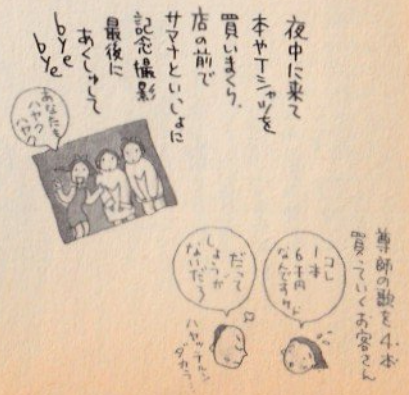 夜中に来て
本やTシャツを
買いまくり、
店の前で
サマナといっしょに
記念撮影
最後に
あくしゅして
bye
bye
あなたも
ハヤク
ハヤク
尊師の歌を4本
買っていくお客さん
コレ
1本
6千円
なんですけど
だって
しょうが
ないだろ
ハヤッテルンダカラ…